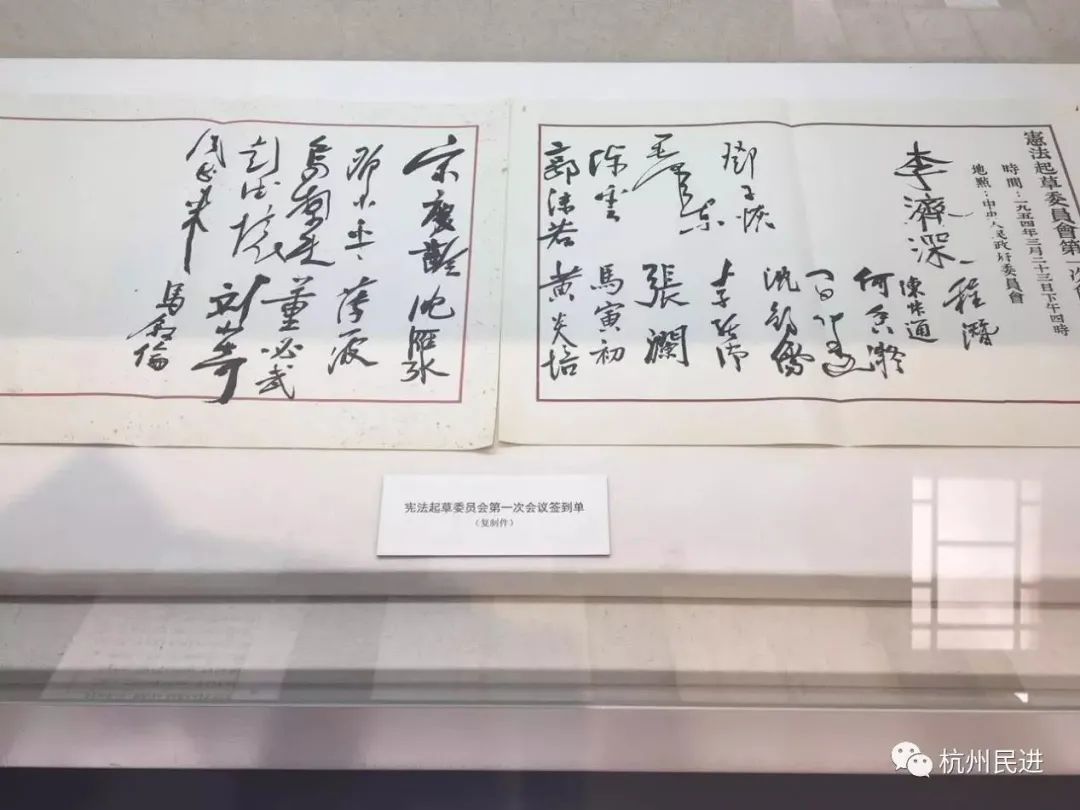 憲法起草委員會第一次
時間：一九五四年三月二十三日下午四時
地點：中央人民政府委員會
程潛
李濟深
陳叔通
何香凝
鄧子恢
沈鈞儒
毛澤東
張瀾
陳雲
馬寅初
郭沫若
黃炎培
宋慶齡
沈雁冰
鄧小平
烏蘭夫
彭德懷
董必武
刘少奇
馬叙倫
宪法起草委员会第一次会议签到单
（复制件）
杭州民进